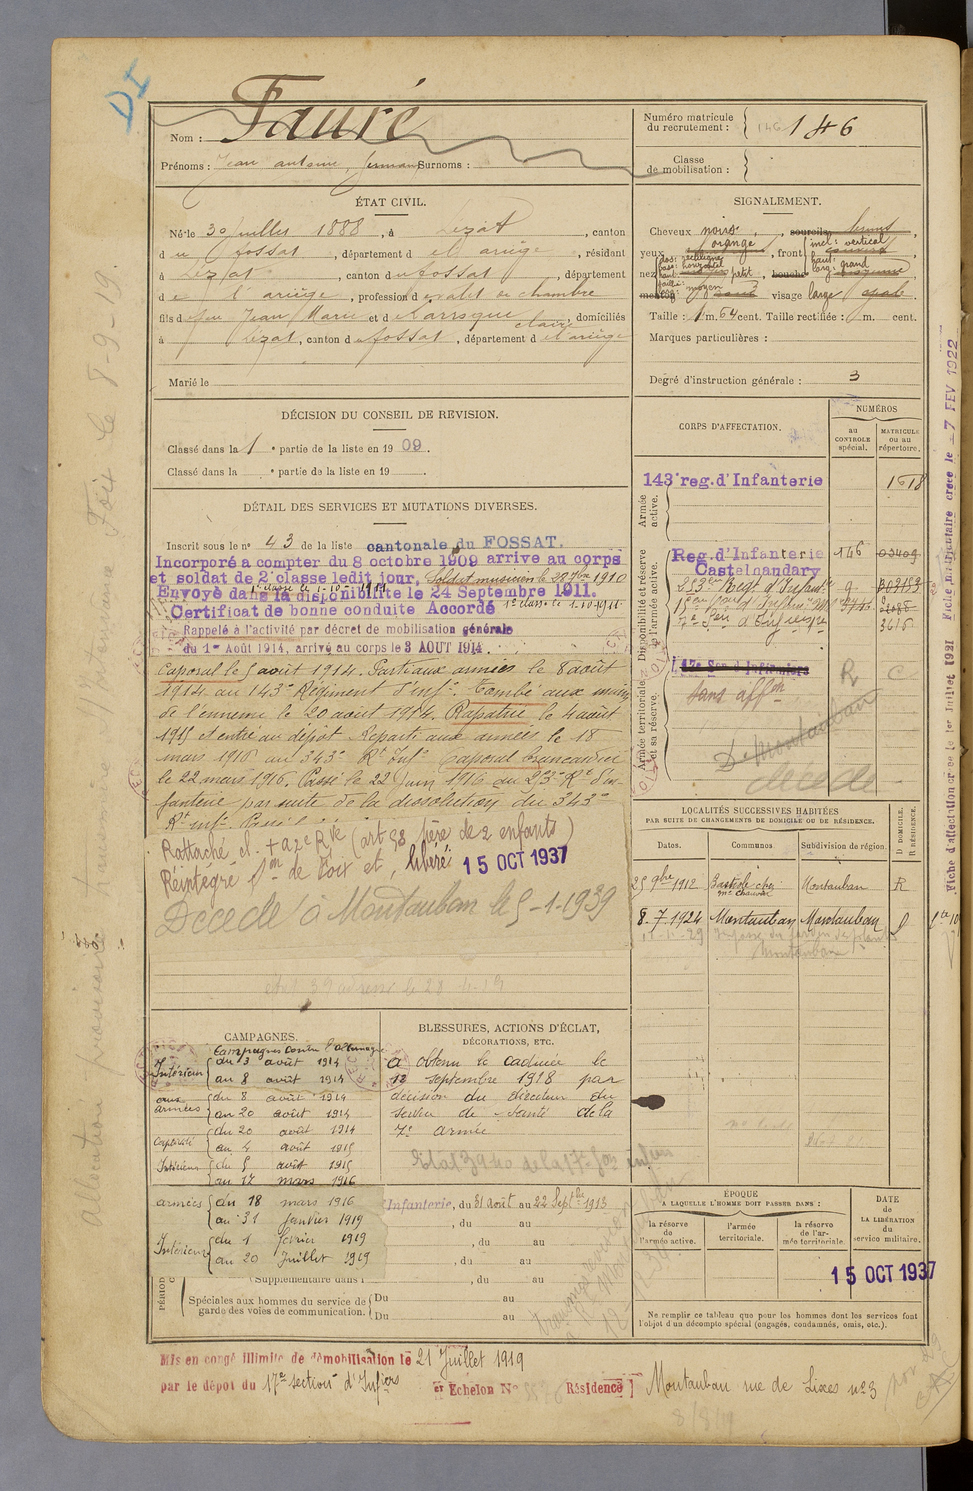 DI
Nom : Fauré
Prénoms : Jean antoine, Germain Surnoms :
Numéro matricule du recrutement : 146 146
Classe de mobilisation :
ÉTAT CIVIL.
Né le 30 juillet 1888, à Lézat, canton
d u fossat, département d e l'ariège, résidant
à Lézat, canton d u fossat, département
d e l'ariège, profession d e valet de chambre
fils d e feu Jean Marie et d e Larroque Claire, domiciliés
à Lézat, canton d u fossat, département d e l'ariège
Marié le
SIGNALEMENT.
Cheveux noirs, sourcils bruns
yeux orange, front incl: vertical
haut:
larg: grand
nez dos: rectiligne
base: horizontal
haut: petit, bouche moyenne
saillie:
larg: moyen
menton rond visage large ovale
Taille : 1 m. 64 cent. Taille rectifiée : m. cent.
Marques particulières :
Degré d'instruction générale : 3
DÉCISION DU CONSEIL DE REVISION.
Classé dans la 1e partie de la liste en 1909.
Classé dans la e partie de la liste en 19
DÉTAIL DES SERVICES ET MUTATIONS DIVERSES.
Inscrit sous le no 43 de la liste cantonale du FOSSAT.
Incorporé a compter du 8 octobre 1909 arrive au corps
et soldat de 2e classe ledit jour, Soldat musicien le 28 7bre 1910
Envoyé dans la disponibilité le 24 Septembre 1911.
Certificat de bonne conduite Accordé 1e classe le 1-10-1911
Rappelé à l'activité par décret de mobilisation générale
du 1er Août 1914, arrivé au corps le 3 AOUT 1914.
Caporal le 5 août 1914. Parti aux armées le 8 août
1914 au 143e Régiment d'Infie. Tombé aux mains
de l'ennemi le 20 août 1914. Rapatrié le 4 août
1915 et entré au dépôt. Reparti aux armées le 18
mars 1916 au 343e Rt Infie Caporal brancardier
le 22 mars 1916. Passé le 22 Juin 1916 au 253e Rt d'In-
fanterie par suite de la dissolution du 343e
Rt infie. Passé
Rattaché cl. + a2e Rve (art 58 père de 2 enfants)
Réintègre Son de Foix et, libéré 15 OCT 1937
Décédé à Montauban le 5-1-1939
CORPS D'AFFECTATION.
NUMÉROS
au CONTROLE spécial.
MATRICULE ou au répertoire.
Armée active.
143e reg. d'Infanterie 1618
Disponibilité et réserve de l'armée active.
Reg. d'Infanterie 146 03409
Castelnaudary
253e Regt d'Infanterie 9
3616
Armée territoriale et sa réserve.
17e Son d'Infirmiers R C
Sans affon
De Montauban
décédé
LOCALITÉS SUCCESSIVES HABITÉES
PAR SUITE DE CHANGEMENTS DE DOMICILE OU DE RÉSIDENCE.
Dates. Communes Subdivision de région. D DOMICILE. R RÉSIDENCE.
25 9bre 1912 Bastide chez Mr Chauvin Montauban R
8-7-1924 Montauban Montauban D
Montauban
CAMPAGNES.
Campagnes contre l'allemagne
Intérieur du 3 août 1914
au 8 août 1914
aux armées du 8 août 1914
au 20 août 1914
Captivité du 20 août 1914
au 4 août 1915
Intérieur du 5 août 1915
au 17 mars 1916
armées du 18 mars 1916
au 31 Janvier 1919
Intérieur du 1 février 1919
au 20 Juillet 1919
BLESSURES, ACTIONS D'ÉCLAT,
DÉCORATIONS, ETC.
A obtenu le caducée le
12 septembre 1918 par
décision du directeur du
service de Santé de la
7e armée
PÉRIOD
Infanterie, du 31 août au 22 Septbre 1913
, du au
, du au
, du au
(Supplémentaire dans l , du au
Spéciales aux hommes du service de garde des voies de communication. Du au
Du au
ÉPOQUE
A LAQUELLE L'HOMME DOIT PASSER DANS :
la réserve de l'armée active.
l'armée territoriale.
la réserve de l'armée territoriale.
DATE DE LA LIBÉRATION du service militaire.
15 OCT 1937
Ne remplir ce tableau que pour les hommes dont les services font
l'objet d'un décompte spécial (engagés, condamnés, omis, etc.).
Mis en congé illimité de démobilisation le 21 Juillet 1919
par le dépôt du 17e section d'Infiers er Echelon No Résidence Montauban rue de Lices no 3
8/8/19
allocation provisoire Foix le 8-9-19
Fiche d'affectation créée le 1er Juillet 1921 Fiche matriculaire créée le 7 FEV 1922